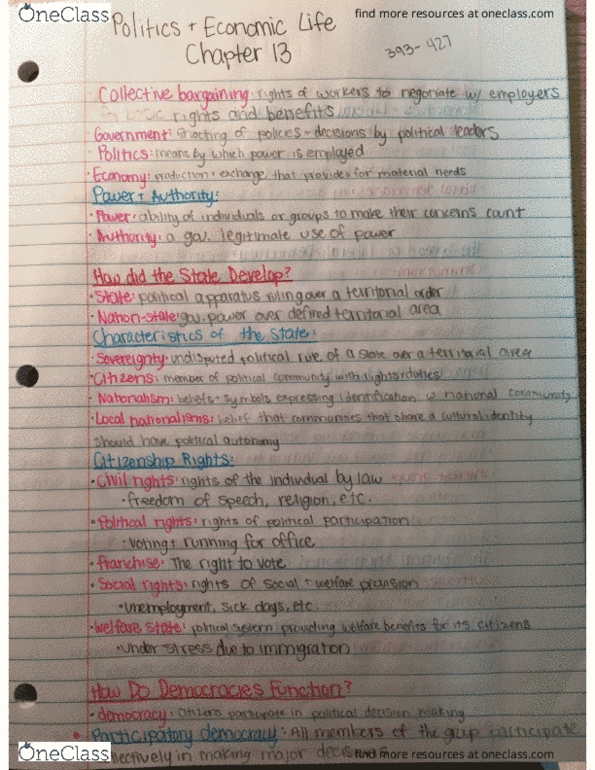 OneClass
find more resources at oneclass.com
Politics + Economic Life
Chapter 13
393-427
• Collective bargaining: rights of workers to negotiate w/ employers
rights and benefits
Government: enacting of policies + decisions by political leaders
• Politics: means by which power is employed
• Economy: production + exchange that provides for material needs
Power + Authority:
• Power: ability of individuals or groups to make their concerns count
• Authority: a gov. legitimate use of power
How did the State Develop?
• State: political apparatus ruling over a territorial order
• Nation-state: gov. power over defined territorial area
Characteristics of the State:
• Sovereignty: undisputed political rule of a State over a territorial area
• Citizens: member of political community with rights + duties
• Nationalism: beliefs + symbols expressing identification w national community
• Local nationalisms: belief that communities that share a cultural identity
should have political autonomy
Citizenship Rights:
• Civil rights: rights of the individual by law
• freedom of speech, religion, etc.
• Political rights: rights of political participation
• voting + running for office
• franchise: The right to vote
• Social rights: rights of social + welfare provision
• unemployment, sick days, etc.
• welfare state: political system providing welfare benefits for its citizens
• under stress due to immigration
How Do Democracies Function?
• democracy: citizens participate in political decision making
• Participatory democracy: All members of the group participate
collectively in making major decisions
OneClass
find more resources at oneclass.com